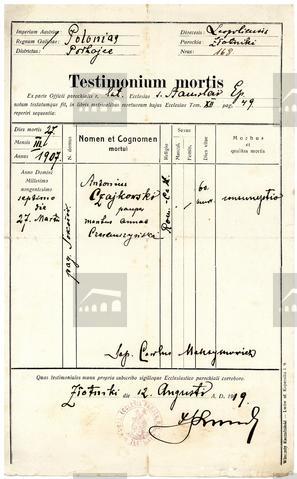 Imperium Austriae Polonia
Regnum Galiciae:
Districtus: Podhajce
Dioecesis Leopoliensis
Parochia Złotniki
Nrus 168
Testimonium mortis
Ex parte Officii parochialis r. lat. Ecclesiae s. Stanislai Ep.
notum testatumque fit, in libris metricalibus mortuorum hujus Ecclesiae Tom. XII pag. 49
reperiri sequentia:
Dies mortis 27.
Mensis III
Annus 1907.
N. domus
Nomen et Cognomen
mortui
Religio
Sexus
Mascul.
Femin.
Dies vitae
Morbus
et
qualitas mortis
Anno Domini
Millesimo
nongentesimo
septimo
die
27. Martii
pag. Sokolów
Antonius
Czajkowski
pauper
maritus Annae
Rom. Cath.
1
60
Sep. Carolus Maksymowicz
Quas testimoniales manu propria subscribo sigilloque Ecclesiastico parochiali corroboro.
Złotniki die 12. Augusti A. D. 1919.